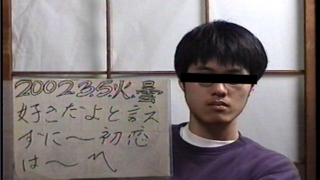 2002 3.5 火 曇
好きだよと言え
ずに〜初恋
は〜れ